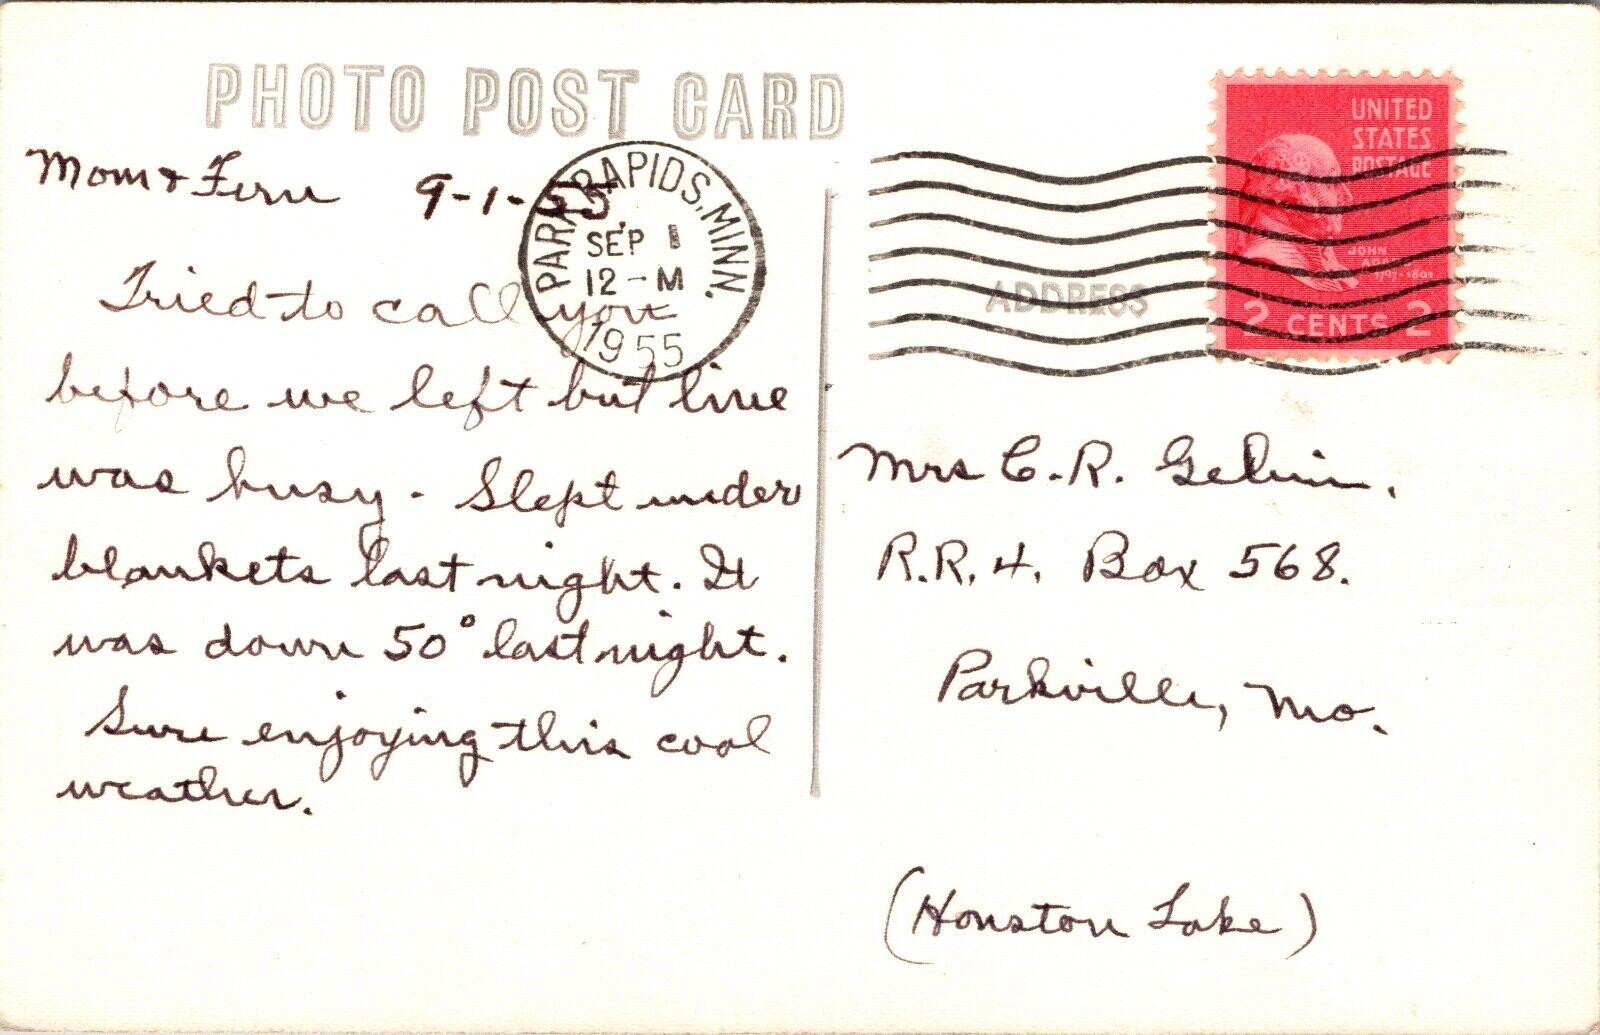 PHOTO POST CARD
Mom & Fern 9-1-55
PARK RAPIDS, MINN.
SEP 1
12-M
1955
Tried to call you
before we left but line
was busy. Slept under
blankets last night. It
was down 50° last night.
Sure enjoying this cool
weather.
UNITED
STATES
POSTAGE
JOHN
ADAMS
1797-1801
2 CENTS 2
ADDRESS
Mrs C. R. Gelvin.
R.R. 4. Box 568.
Parkville, Mo.
(Houston Lake)